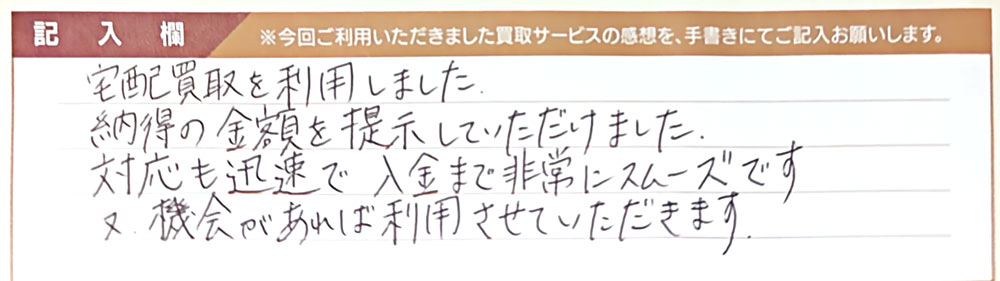 記入欄 ※今回ご利用いただきました買取サービスの感想を、手書きにてご記入お願いします。
宅配買取を利用しました.
納得の金額を提示していただけました.
対応も迅速で 入金まで非常にスムーズです
又.機会があれば利用させていただきます.